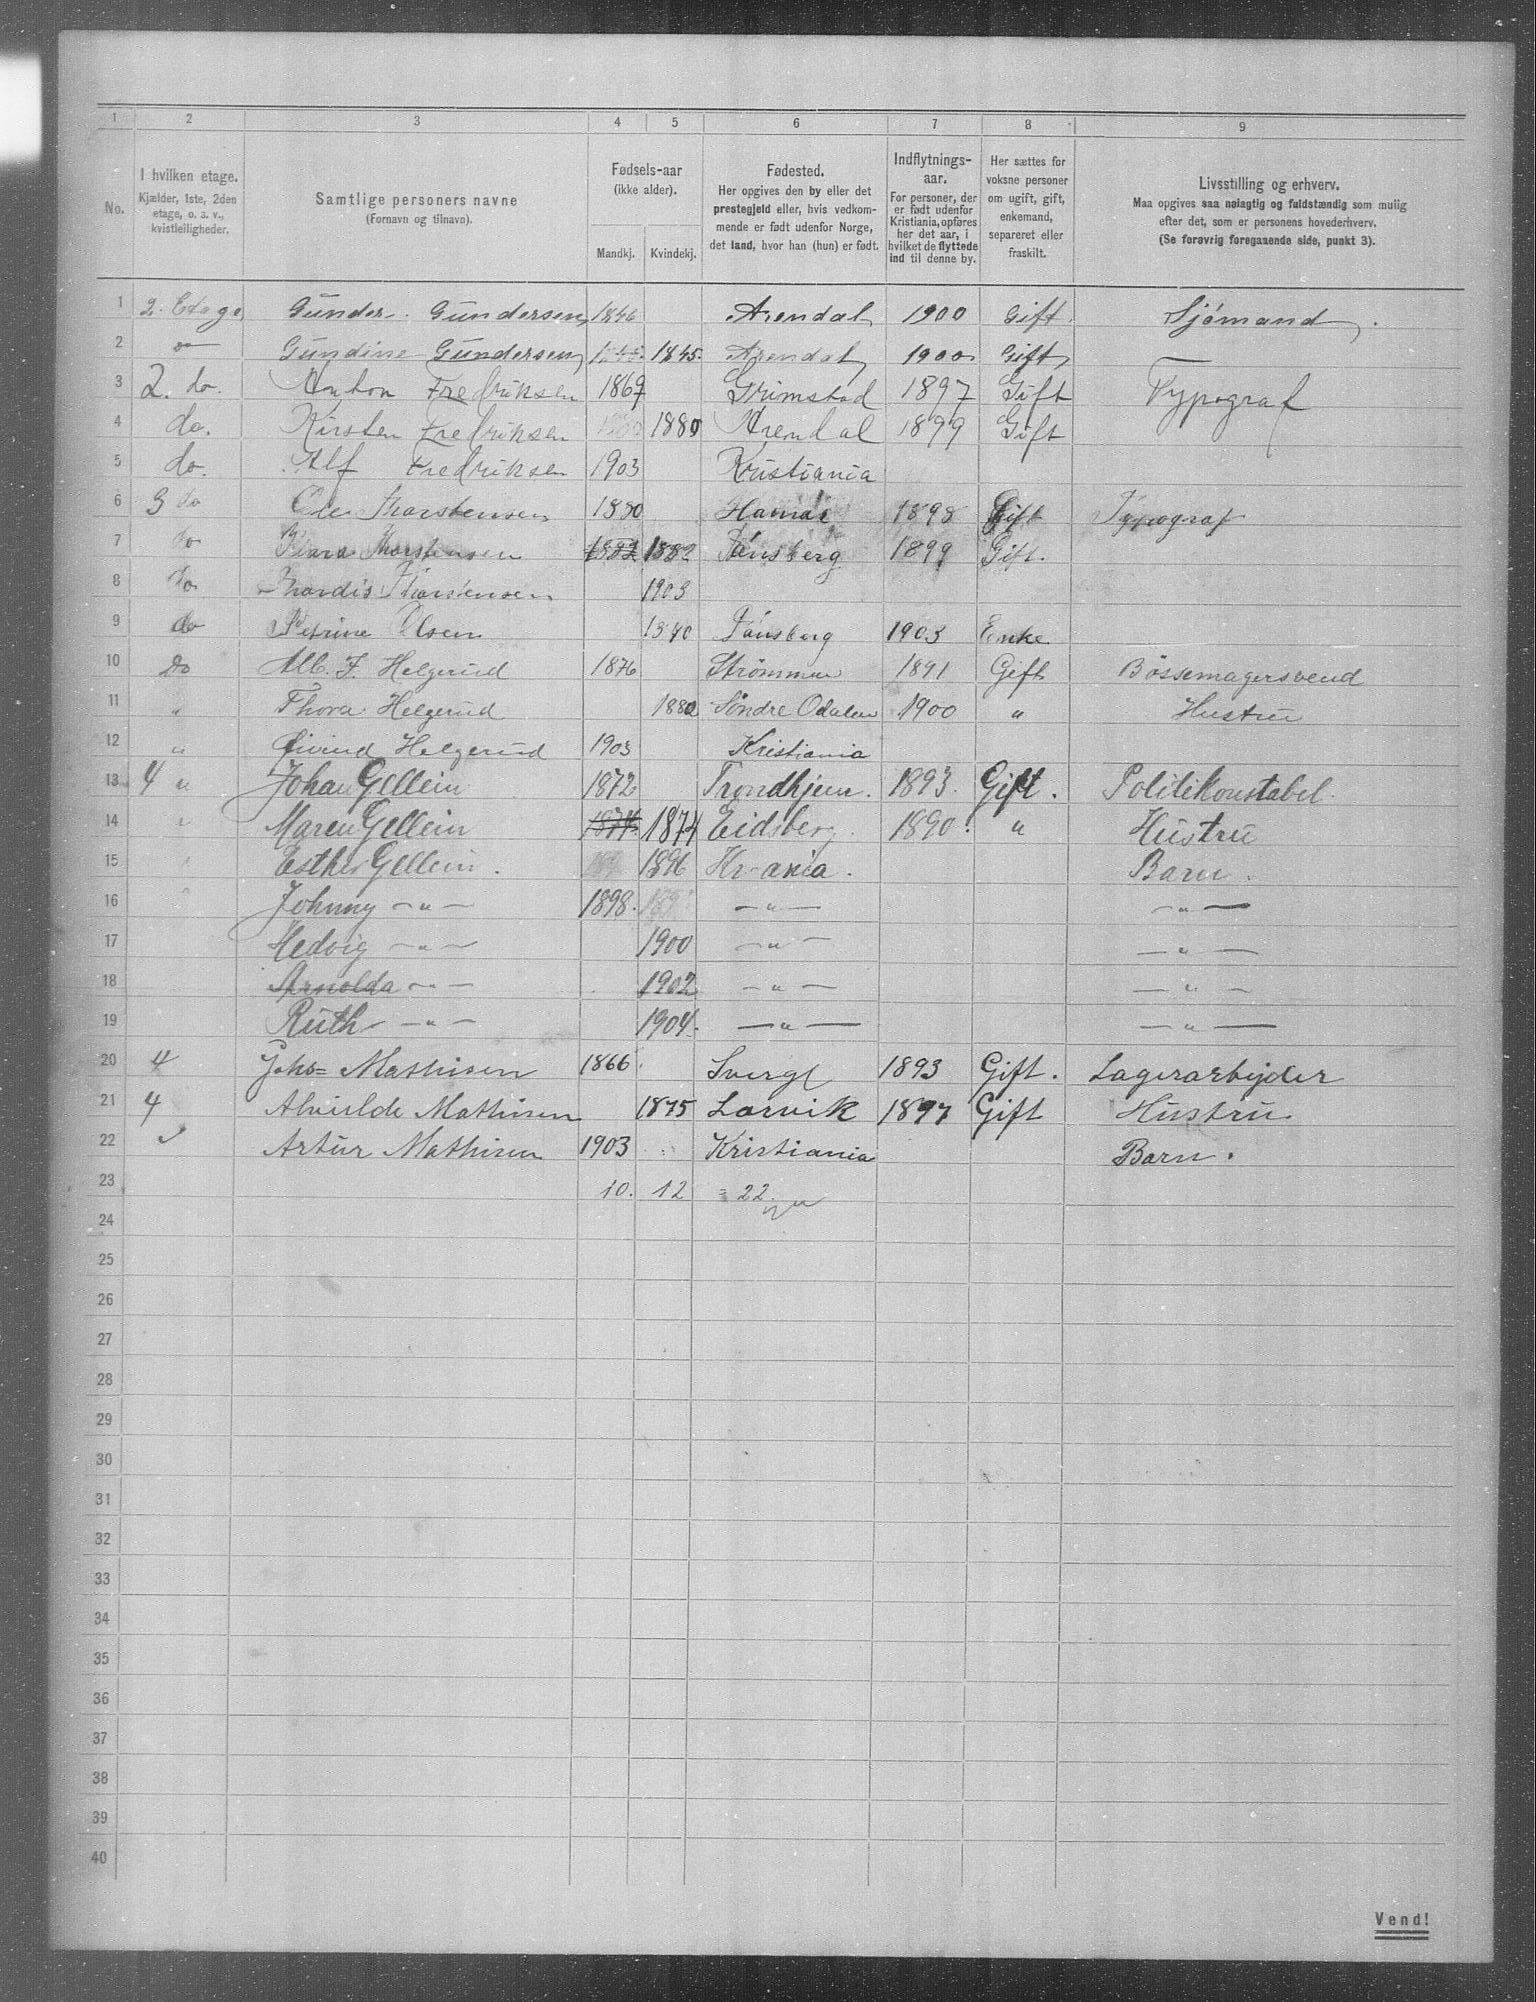 1 2 3 4 5 6 7 8 9
No. I hvilken etage. Kjælder, 1ste, 2den etage, o. s. v., kvistleiligheder. Samtlige personers navne (Fornavn og tilnavn). Fødsels-aar (ikke alder). Mandkj. Kvindekj. Fødested. Her opgives den by eller det prestegjeld eller, hvis vedkommende er født udenfor Norge, det land, hvor han (hun) er født. Indflytnings-aar. For personer, der er født udenfor Kristiania, opføres her det aar, i hvilket de flyttede ind til denne by. Her sættes for voksne personer om ugift, gift, enkemand, separeret eller fraskilt. Livsstilling og erhverv. Maa opgives saa nøiagtig og fuldstændig som mulig efter det, som er personens hovederhverv. (Se forøvrig foregaaende side, punkt 3).
1 2. Etage Gunder Gundersen 1846 Arendal 1900 Gift Sjømand
2 Gundine Gundersen 1845 1845 Arendal 1900 Gift
3 2. do. Anton Fredriksen 1869 Grimstad 1897 Gift Typograf
4 do. Kirsten Fredriksen 1880 Arendal 1899 Gift
5 do. Alf Fredriksen 1903 Kristiania
6 3 do Ole Thorstensen 1880 Hamar 1898 Gift Typograf
7 do Klara Thorstensen 1882 1882 Tønsberg 1899 Gift.
8 do Thordis Thorstensen 1903
9 do Petrine Olsen Tønsberg 1903 Enke
10 Do Alb. F. Helgerud 1876 Strømmen 1891 Gift Bøssemagersvend
11 " Thora Helgerud 1880 Søndre Odalen 1900 " Hustru
12 " Øivind Helgerud 1903 Kristiania
13 4 " Johan Gellein 1872 Trondhjem. 1893. Gift. Politikonstabel.
14 " Maren Gellein 1874 1874 Eidsberg. 1890. " Hustru
15 Esther Gellein. 1896 Kr-ania. Barn.
16 Johnny - " - 1898. - " - - " -
17 Hedvig - " - 1900 - " - - " -
18 Arnolda - " - 1902 - " - - " -
19 Ruth - " - 1904. - " - - " -
20 4 Johs= Mathisen 1866 Sverge 1893 Gift. Lagerarbejder
21 4 Alvilde Mathisen 1875 Larvik 1897 Gift Hustru
22 Artur Mathisen 1903 Kristiania Barn.
23 10. 12 = 22.
24
25
26
27
28
29
30
31
32
33
34
35
36
37
38
39
40
Vend!